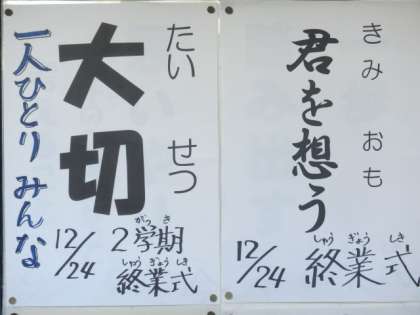 君を想う
きみ おも
12/24 終業式
しゅう ぎょう しき
大切
たい せつ
一人ひとり みんな
12/24 2学期
がっ き
終業式
しゅう ぎょう しき